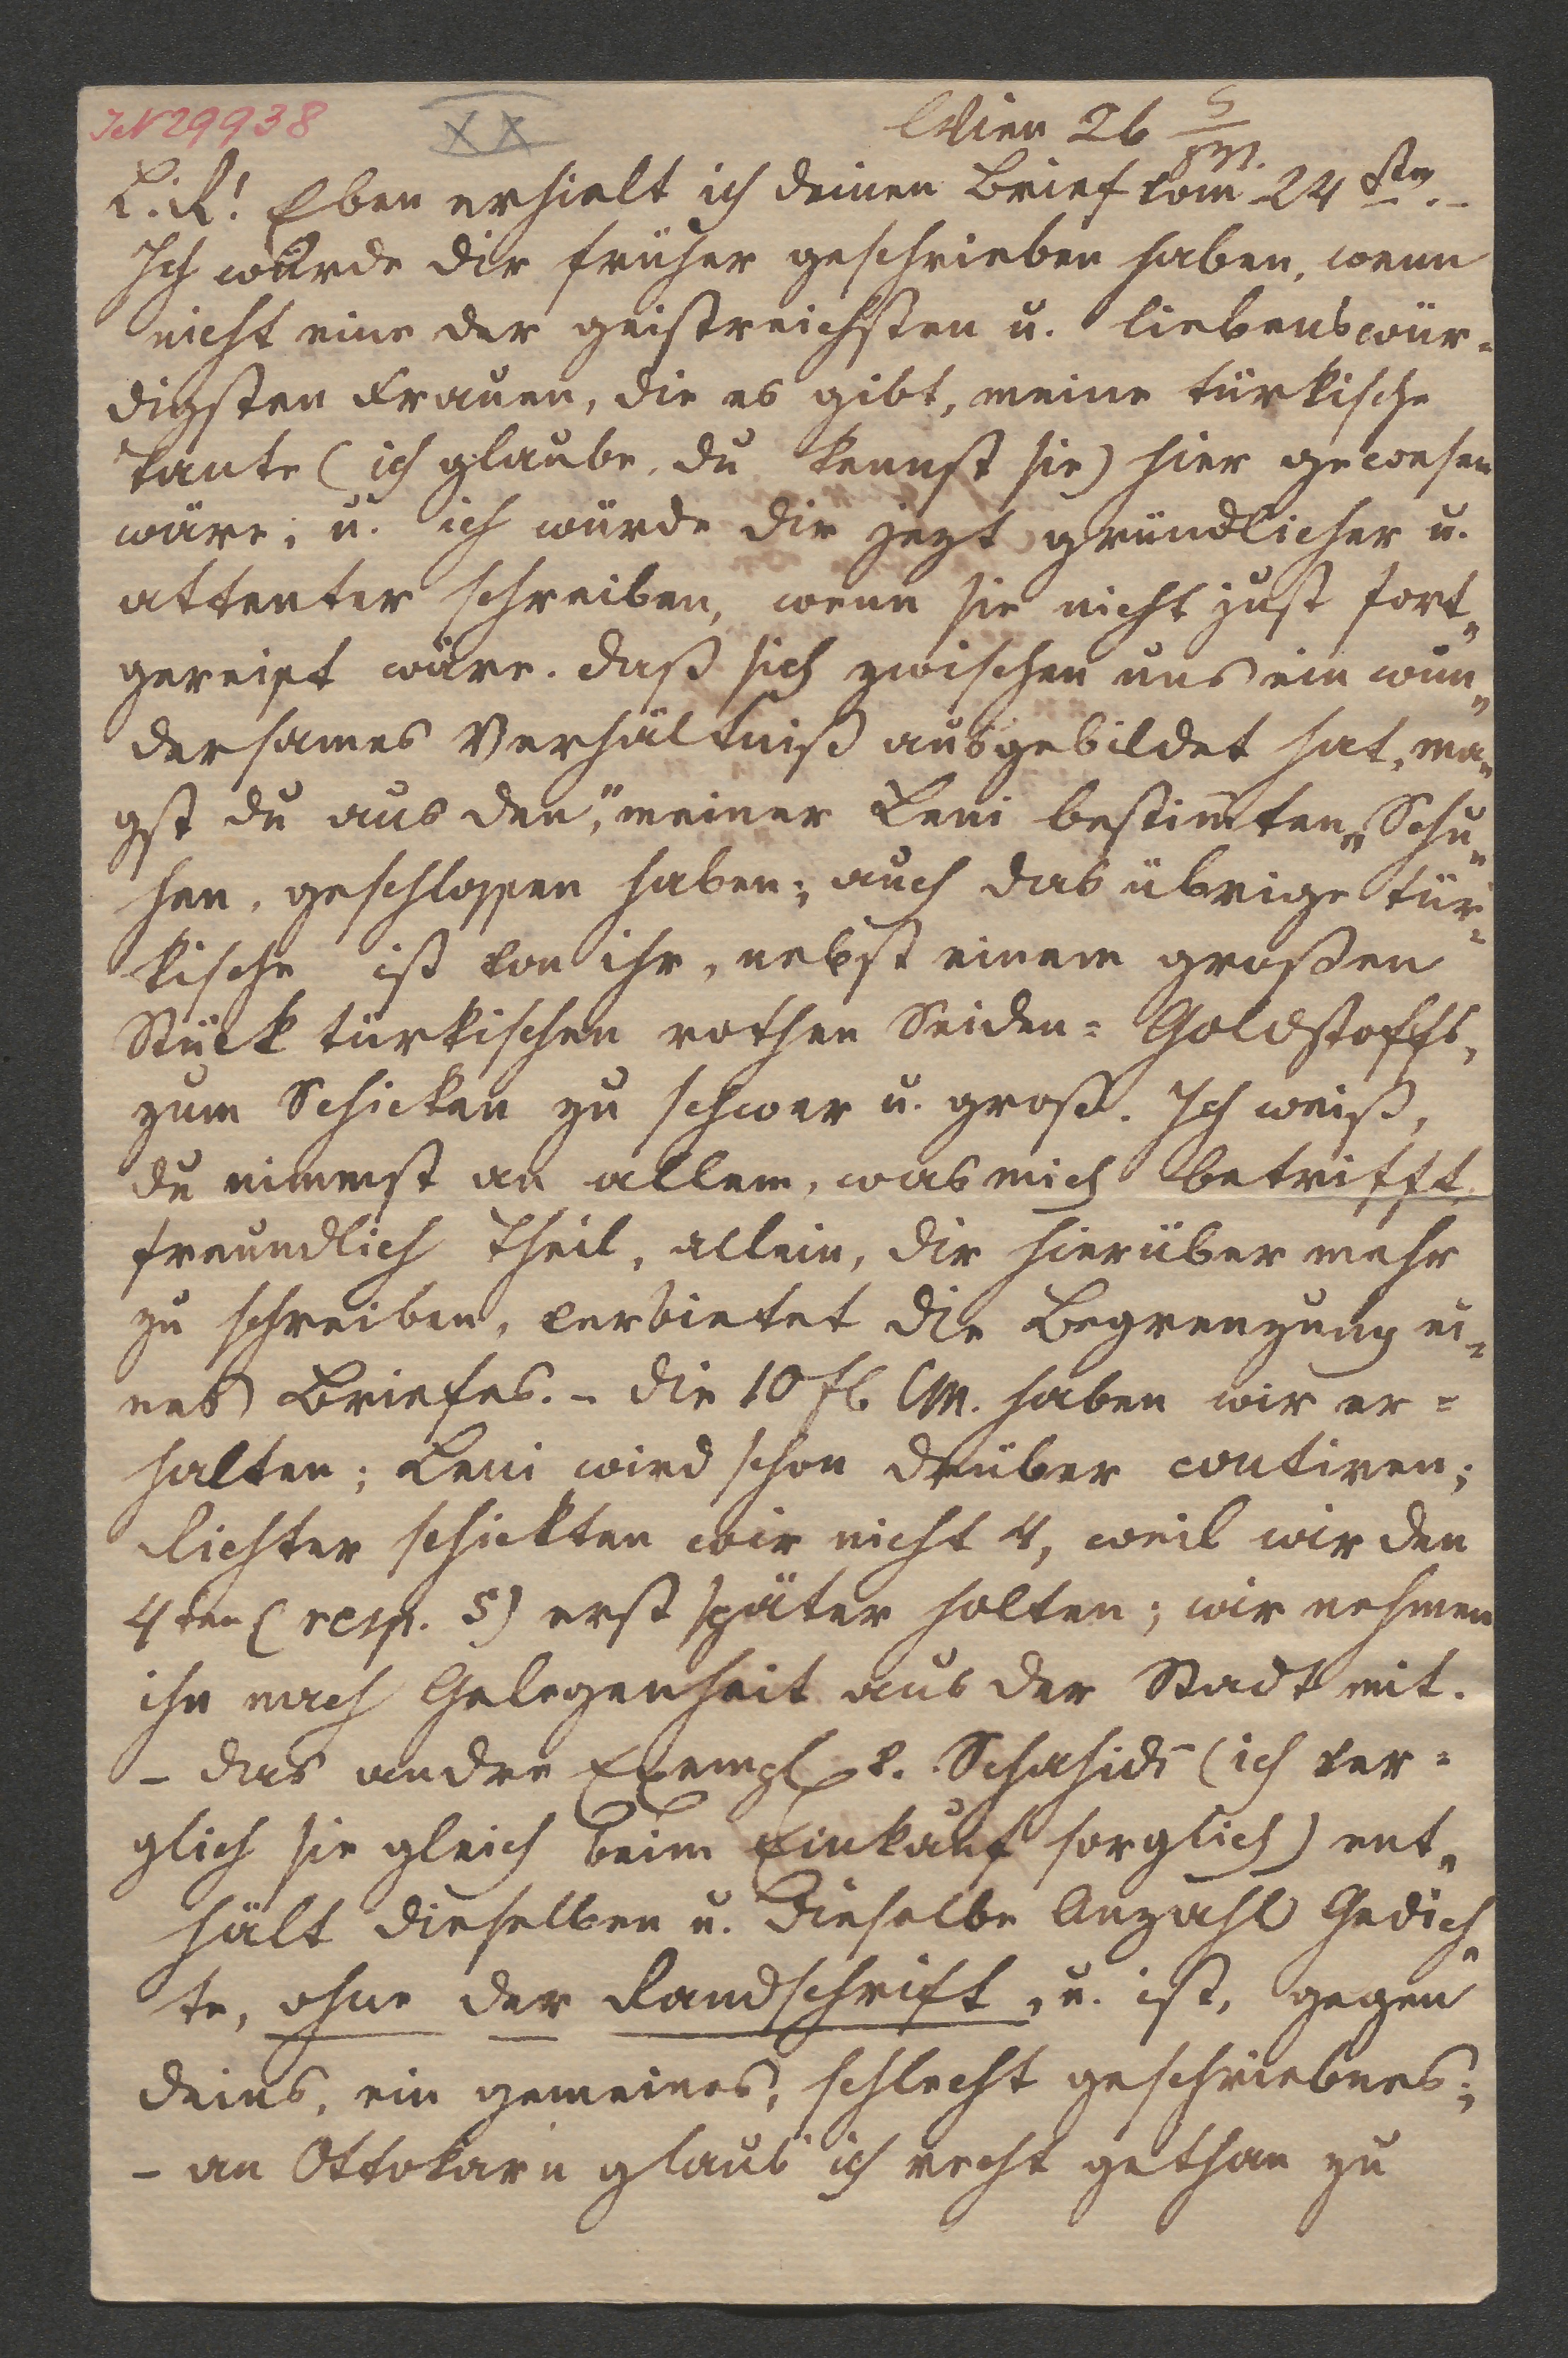 IN 29938
XX
Wien 26 5/m.
L. R! Eben erhielt ich deinen Brief vom 24sten.–
Ich würde dir früher geschrieben haben, wenn
nicht eine der geistreichsten u. liebenswür=
digsten Frauen, die es gibt, meine türkische
Tante (ich glaube, du kennst sie) hier gewesen
wäre; u. ich würde dir jezt gründlicher u.
attenter schreiben, wenn sie nicht just fort=
gereist wäre. Daß sich zwischen uns ein wun=
dersames Verhältniß ausgebildet hat, ma=
gst du aus den, "meiner Leni bestimten" Schu=
hen, geschlossen haben; auch das übrige tür=
kische ist von ihr, nebst einem großen
Stück türkischen rothen Seiden= Goldstoffs,
zum Schicken zu schwer u. groß. Ich weiß,
du nimmst an allem, was mich betrifft,
freundlich Theil, allein, dir hierüber mehr
zu schreiben, verbietet die Begrenzung ei=
nes Briefes. – Die 10 fl CM. haben wir er=
halten; Leni wird schon drüber contiren;
Richter schickten wir nicht 4, weil wir den
4ten (resp. 5) erst später holten; wir nehmen
ihn nach Gelegenheit aus der Stadt mit.
– das andre Exempl v. Schahidi (ich ver=
glich sie gleich beim Einkauf sorglich) ent=
hält dieselben u. dieselbe Anzahl Gedich=
te, ohne der Randschrift, u. ist, gegen
deins, ein gemeines, schlecht geschriebnes;
– an Ottokarn glaub' ich recht gethan zu